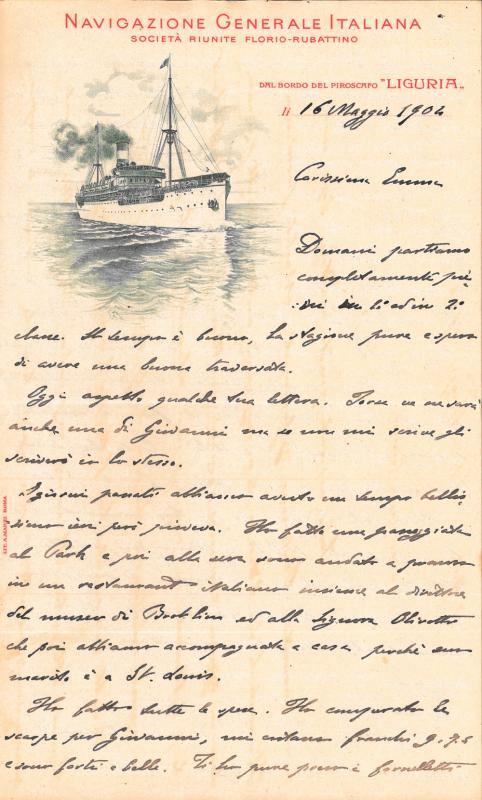 NAVIGAZIONE GENERALE ITALIANA
SOCIETÀ RIUNITE FLORIO-RUBATTINO
DAL BORDO DEL PIROSCAFO "LIGURIA"
li 16 Maggio 1904
Carissima Emma
Domani partiamo
completamente pie
ni in 1ª ed in 2ª
classe. Il tempo è buono, la stagione pure e spero
di avere una buona traversata.
Oggi aspetto qualche tua lettera. Forse ve ne sarà
anche una di Giovanni ma se non mi scrive gli
scriverò io lo stesso.
I giorni passati abbiamo avuto un tempo bellis
simo ieri però pioveva. Ho fatto una passeggiata
al Park e poi alla sera sono andato a pranzo
in un restaurant italiano insieme al direttore
del museo di Brooklin ed alla Signora
che poi abbiamo accompagnata a casa perchè suo
marito è a St. Louis.
Ho fatto tutte le spese. Ho comprato le
scarpe per Giovanni, mi costano franchi 9.75
e sono forti e belle. Ti ho pure preso i fornelletti
LIT. A. MARZI. ROMA